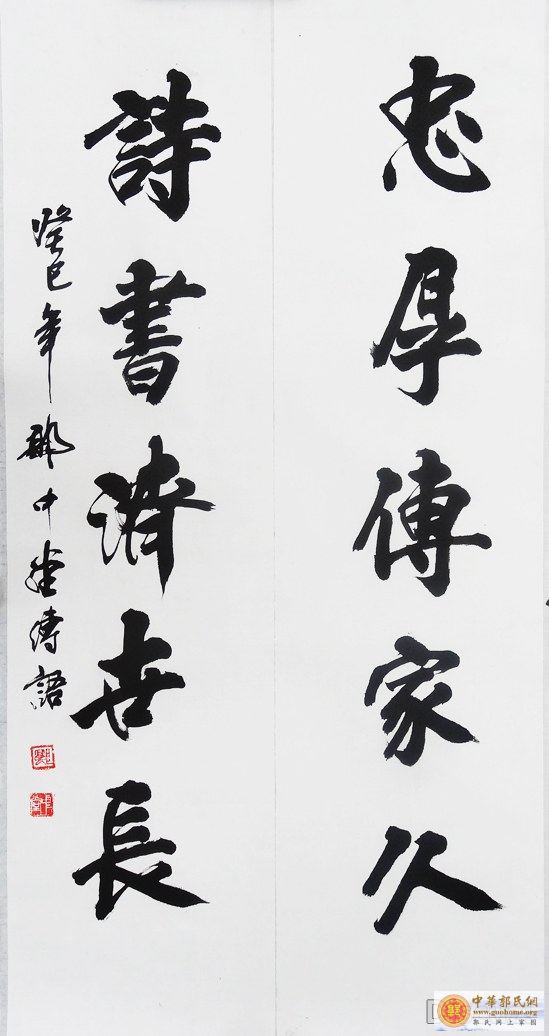 忠厚傳家久
詩書濟世長
癸巳年
中華郭氏網
www.guohome.org
郭氏网上家园